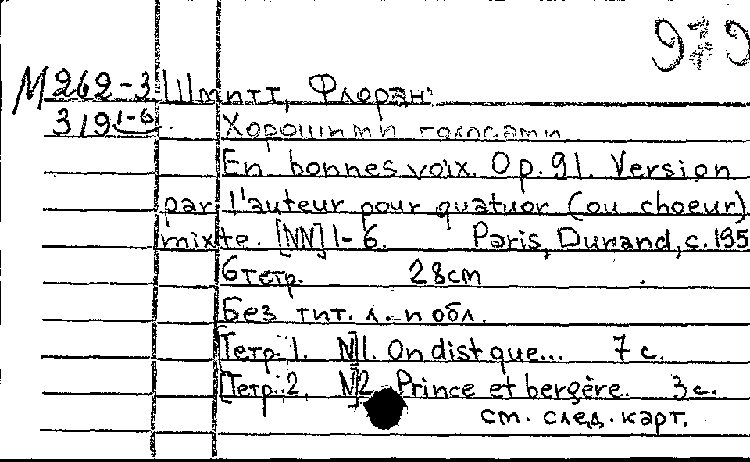 979
М262-3 Шмитт, Флоран.
319 1-6 Хорошими голосами
En bonnes voix. Op. 91. Version
par l'auteur pour quatuor (ou choeur)
mixte. [NN] 1-6. Paris, Durand, c. 195
6 тетр. 28см
Без тит. л. и обл.
[Тетр.] 1. N 1. On dist que... 7 с.
[Тетр.] 2. N 2. Prince et bergère. 3 с.
см. след. карт.